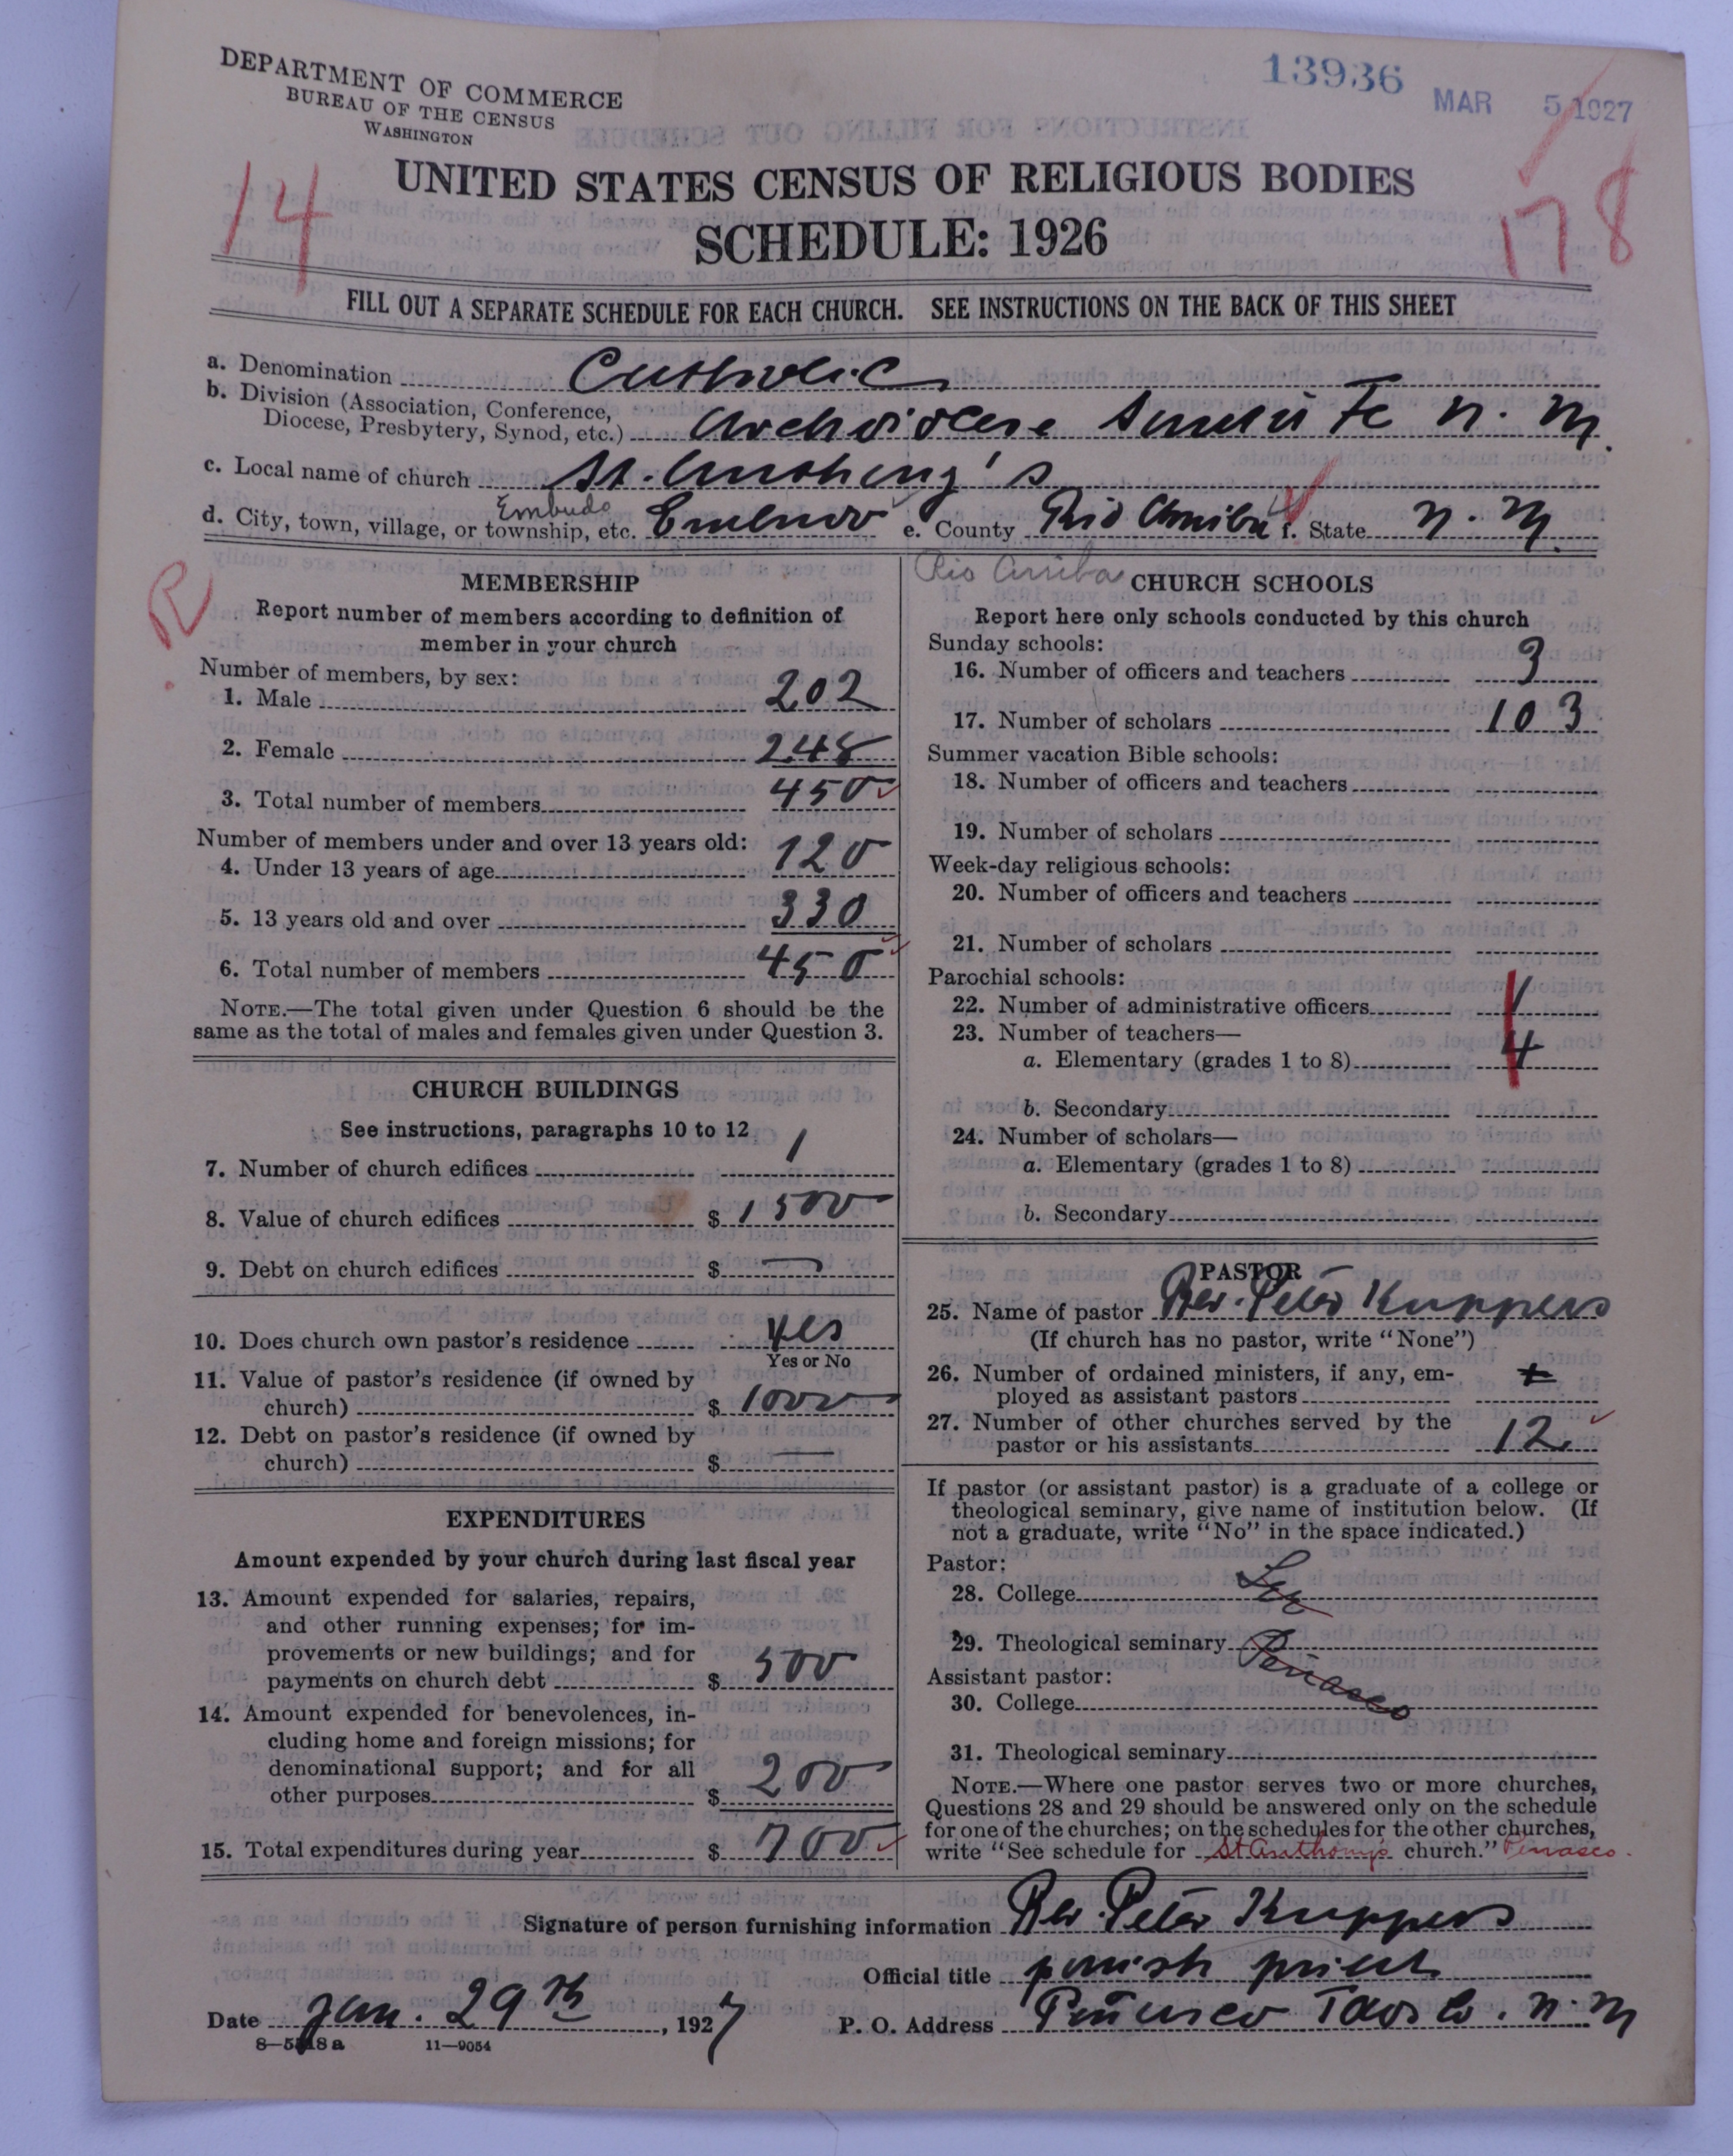 DEPARTMENT OF COMMERCE
BUREAU OF THE CENSUS
WASHINGTON
13936
MAR 5 1927
14
178
UNITED STATES CENSUS OF RELIGIOUS BODIES
SCHEDULE: 1926
FILL OUT A SEPARATE SCHEDULE FOR EACH CHURCH. SEE INSTRUCTIONS ON THE BACK OF THIS SHEET
a. Denomination Catholic
b. Division (Association, Conference,
Diocese, Presbytery, Synod, etc.) Archdiocese Santa Fe N. M.
c. Local name of church St. Anthony's
Embudo
d. City, town, village, or township, etc. Embudo e. County Rio Arriba f. State N. M.
Rio Arriba
R
MEMBERSHIP
Report number of members according to definition of
member in your church
Number of members, by sex:
1. Male 202
2. Female 248
3. Total number of members 450
Number of members under and over 13 years old:
4. Under 13 years of age 120
5. 13 years old and over 330
6. Total number of members 450
NOTE.—The total given under Question 6 should be the
same as the total of males and females given under Question 3.
CHURCH BUILDINGS
See instructions, paragraphs 10 to 12
7. Number of church edifices 1
8. Value of church edifices $ 1500
9. Debt on church edifices $ —
10. Does church own pastor's residence yes
Yes or No
11. Value of pastor's residence (if owned by
church) $ 1000
12. Debt on pastor's residence (if owned by
church) $ —
EXPENDITURES
Amount expended by your church during last fiscal year
13. Amount expended for salaries, repairs,
and other running expenses; for im-
provements or new buildings; and for
payments on church debt $ 500
14. Amount expended for benevolences, in-
cluding home and foreign missions; for
denominational support; and for all
other purposes $ 200
15. Total expenditures during year $ 700
CHURCH SCHOOLS
Report here only schools conducted by this church
Sunday schools:
16. Number of officers and teachers 3
17. Number of scholars 103
Summer vacation Bible schools:
18. Number of officers and teachers
19. Number of scholars
Week-day religious schools:
20. Number of officers and teachers
21. Number of scholars
Parochial schools:
22. Number of administrative officers 1
23. Number of teachers—
a. Elementary (grades 1 to 8) 4
b. Secondary
24. Number of scholars—
a. Elementary (grades 1 to 8)
b. Secondary
PASTOR
25. Name of pastor Rev. Peter Kuppers
(If church has no pastor, write "None")
26. Number of ordained ministers, if any, em-
ployed as assistant pastors
27. Number of other churches served by the
pastor or his assistants 12
If pastor (or assistant pastor) is a graduate of a college or
theological seminary, give name of institution below. (If
not a graduate, write "No" in the space indicated.)
Pastor:
28. College
29. Theological seminary Peñasco
Assistant pastor:
30. College
31. Theological seminary
NOTE.—Where one pastor serves two or more churches,
Questions 28 and 29 should be answered only on the schedule
for one of the churches; on the schedules for the other churches,
write "See schedule for St Anthony's church." Penasco.
Signature of person furnishing information Rev. Peter Kuppers
Official title parish priest
Date Jan. 29th, 1927 P. O. Address Peñasco Taos Co. N. M
8—5518 a 11—9054